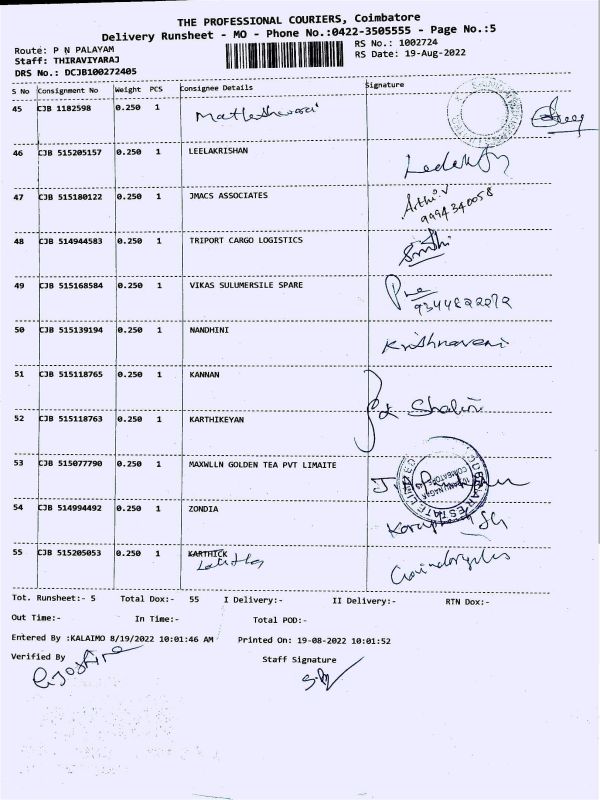 THE PROFESSIONAL COURIERS, Coimbatore
Delivery Runsheet - MO - Phone No.:0422-3505555 - Page No.:5
Route: P N PALAYAM
RS No.: 1002724
Staff: THIRAVIYARAJ
RS Date: 19-Aug-2022
DRS No.: DCJB100272405
S No Consignment No Weight PCS Consignee Details Signature
45 CJB 1182598 0.250 1
46 CJB 515205157 0.250 1 LEELAKRISHAN
47 CJB 515180122 0.250 1 JMACS ASSOCIATES Arthi V
9994340058
48 CJB 514944583 0.250 1 TRIPORT CARGO LOGISTICS
49 CJB 515168584 0.250 1 VIKAS SULUMERSILE SPARE
9344822272
50 CJB 515139194 0.250 1 NANDHINI Krishnaveni
51 CJB 515118765 0.250 1 KANNAN
Shalini
52 CJB 515118763 0.250 1 KARTHIKEYAN
53 CJB 515077790 0.250 1 MAXWLLN GOLDEN TEA PVT LIMAITE
54 CJB 514994492 0.250 1 ZONDIA
55 CJB 515205053 0.250 1 KARTHICK
Tot. Runsheet:- 5 Total Dox:- 55 I Delivery:- II Delivery:- RTN Dox:-
Out Time:- In Time:- Total POD:-
Entered By :KALAIMO 8/19/2022 10:01:46 AM Printed On: 19-08-2022 10:01:52
Verified By Staff Signature